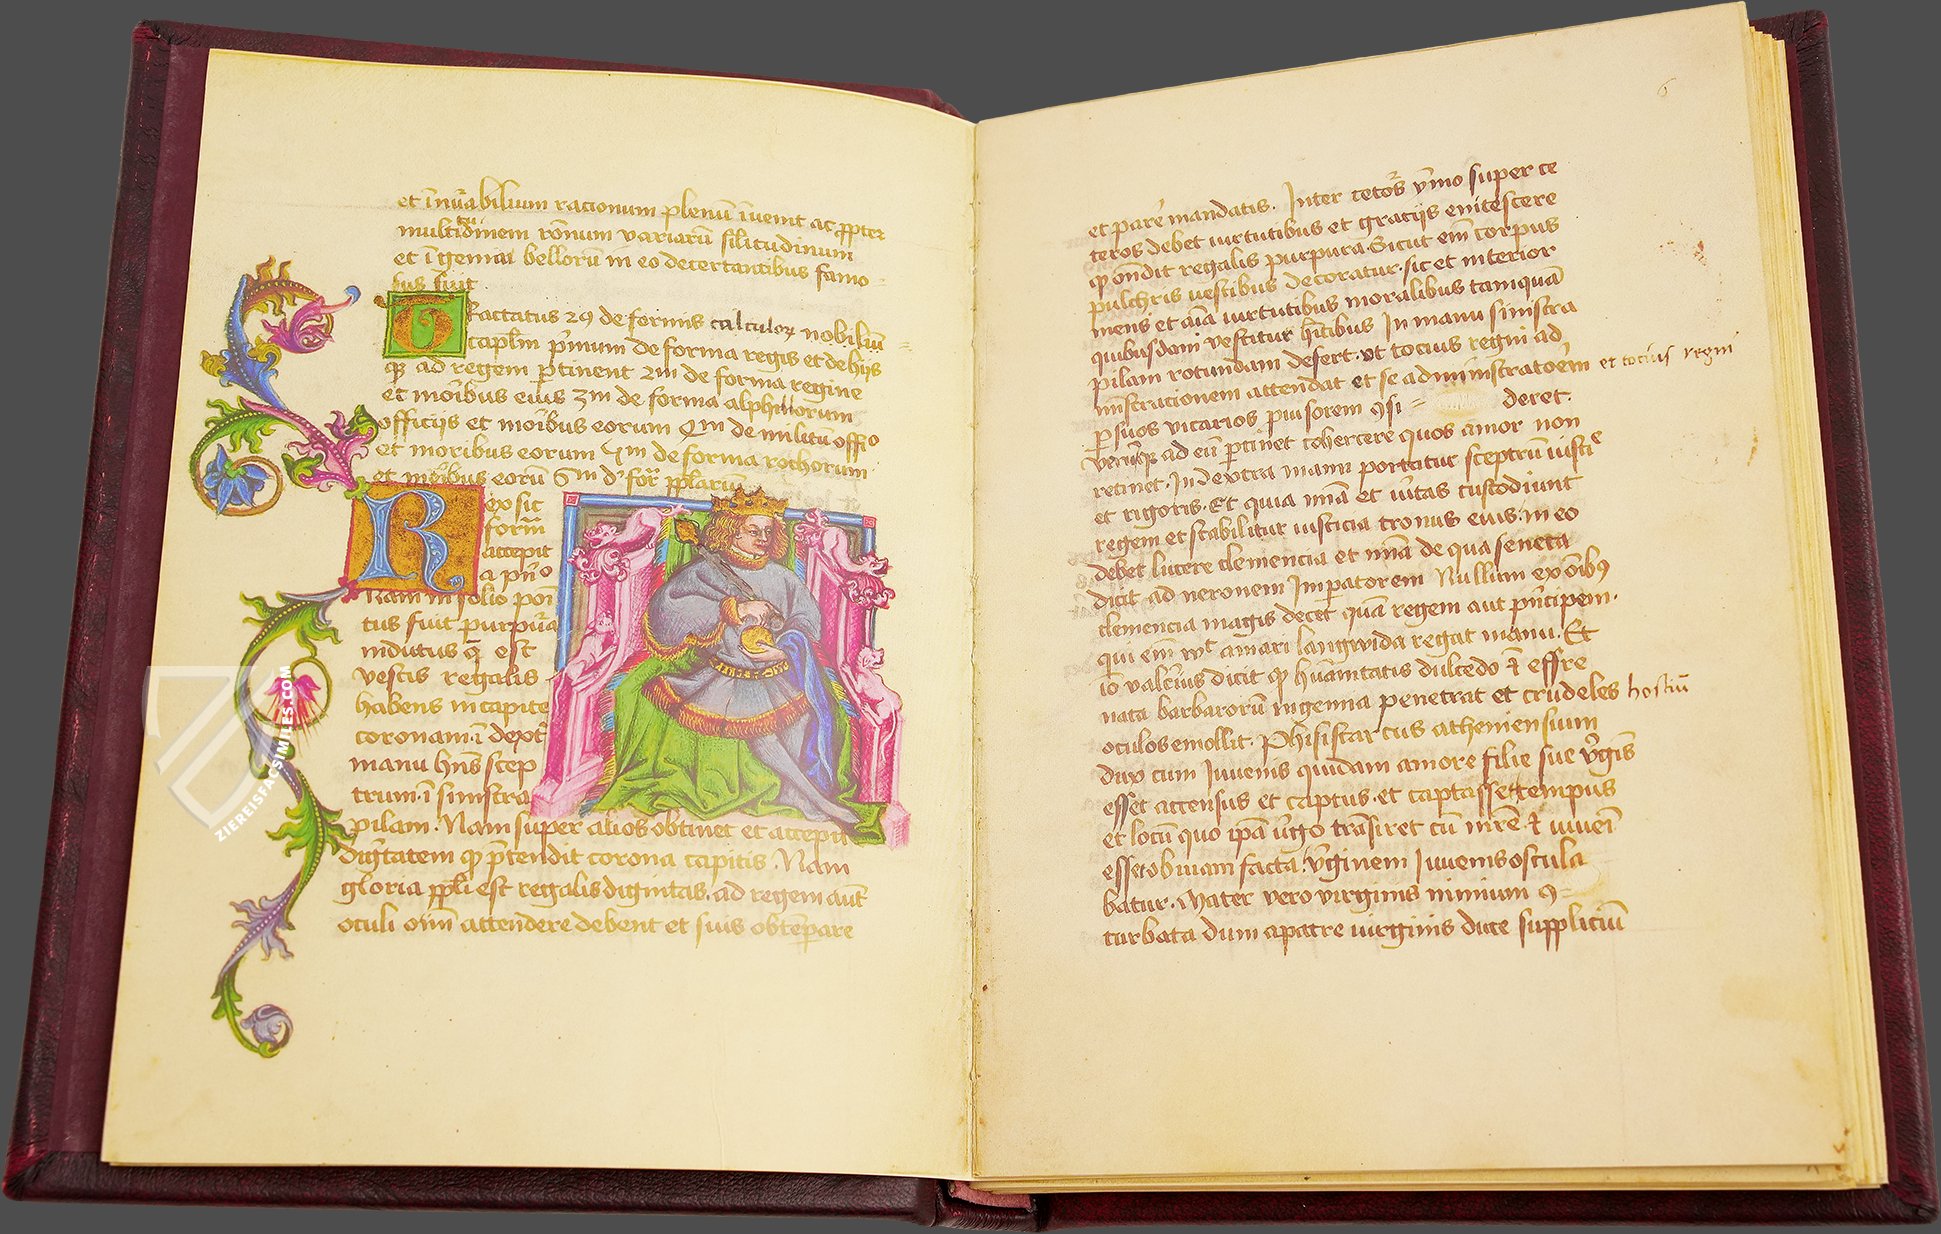 et īnūabilium racionum plenū īvenit ac ꝓpter
multitudinem rōnum variarū silitudinum
et īgeniaɿ bellorū in eo decertantibus famo
sus fuit
Tractatus 2ꝯ de formis calculoꝝ nobiliū
caplm p̄mum de forma regis et de hijs
ad regem ꝑtinent 2m de forma regine
et moībus eius 3m de forma alphilorum
officijs et moībus eorum 4m de militū offīo
et moribus eorum 5m de forma rochorum
et moībus eorū 6m
Rex sic
form̄
accepit
a pn̄o
Nam in solio posi
tus fuit purpura
indutus est
vestis regalis
habens in capite
coronam ī dext̄
manu hn̄s scep
trum ī sinistra
pilam. Nam super alios obtinet et accepit
dignitatem ꝙ p̄tendit corona capitis. Nam
gloria ppli est regalis dignitas. ad regem aūt
oculi om̄ attendere debent et suis obtemꝑare
6
et parere mandatis. Inter ceteros ymo super ce
teros debet virtutibus et gracijs enitescere
ꝙ ōndit regalis purpura. Sicut em̄ corpus
pulchris vestibus decoratur. sic et interior
mens et aīa virtutibus moralibus tamquā
quibusdam vestitur hītibus In manu sinistra
pilam rotundam defert. ut tocius regni ad
ministracionem attendat et se administratoēm et tocius regni
ꝑ suos vicarios ꝓuisorem ꝯsi= deret.
ad eū ꝑtinet cohercere quos amor non
retinet. In dextra manu portatur sceptrū iusticie
et rigoris. Et quia mīa et vītas custodiunt
regem et stabilitur iusticia tronus eius. in eo
debet lucere clemencia et mīa de qua seneca
dicit ad neronem Imperatorem Nullum ex oībꝯ
clemencia magis decet quā regem aut pn̄cipem.
qui em̄ vlt amari langwida regat manu. Et
iō valerius dicit ꝙ hūanitatis dulcedo ī effre
nata barbarorū ingenia penetrat et crudeles hostiū
oculos emollit. Phisistarcus atheniensium
dux cum Iuvenis quidam amore filie sue v̄gis
esset accensus et captus. et captasset tempus
et locū quo ipā v̄go trāsiret cū mr̄e
esset obviam facta. v̄ginem Iuvenis oscula
batur. Mater vero virginis nimium ꝯ=
turbata dum a patre virginis dute suppliciū
ZIEREISFACSIMILES.COM